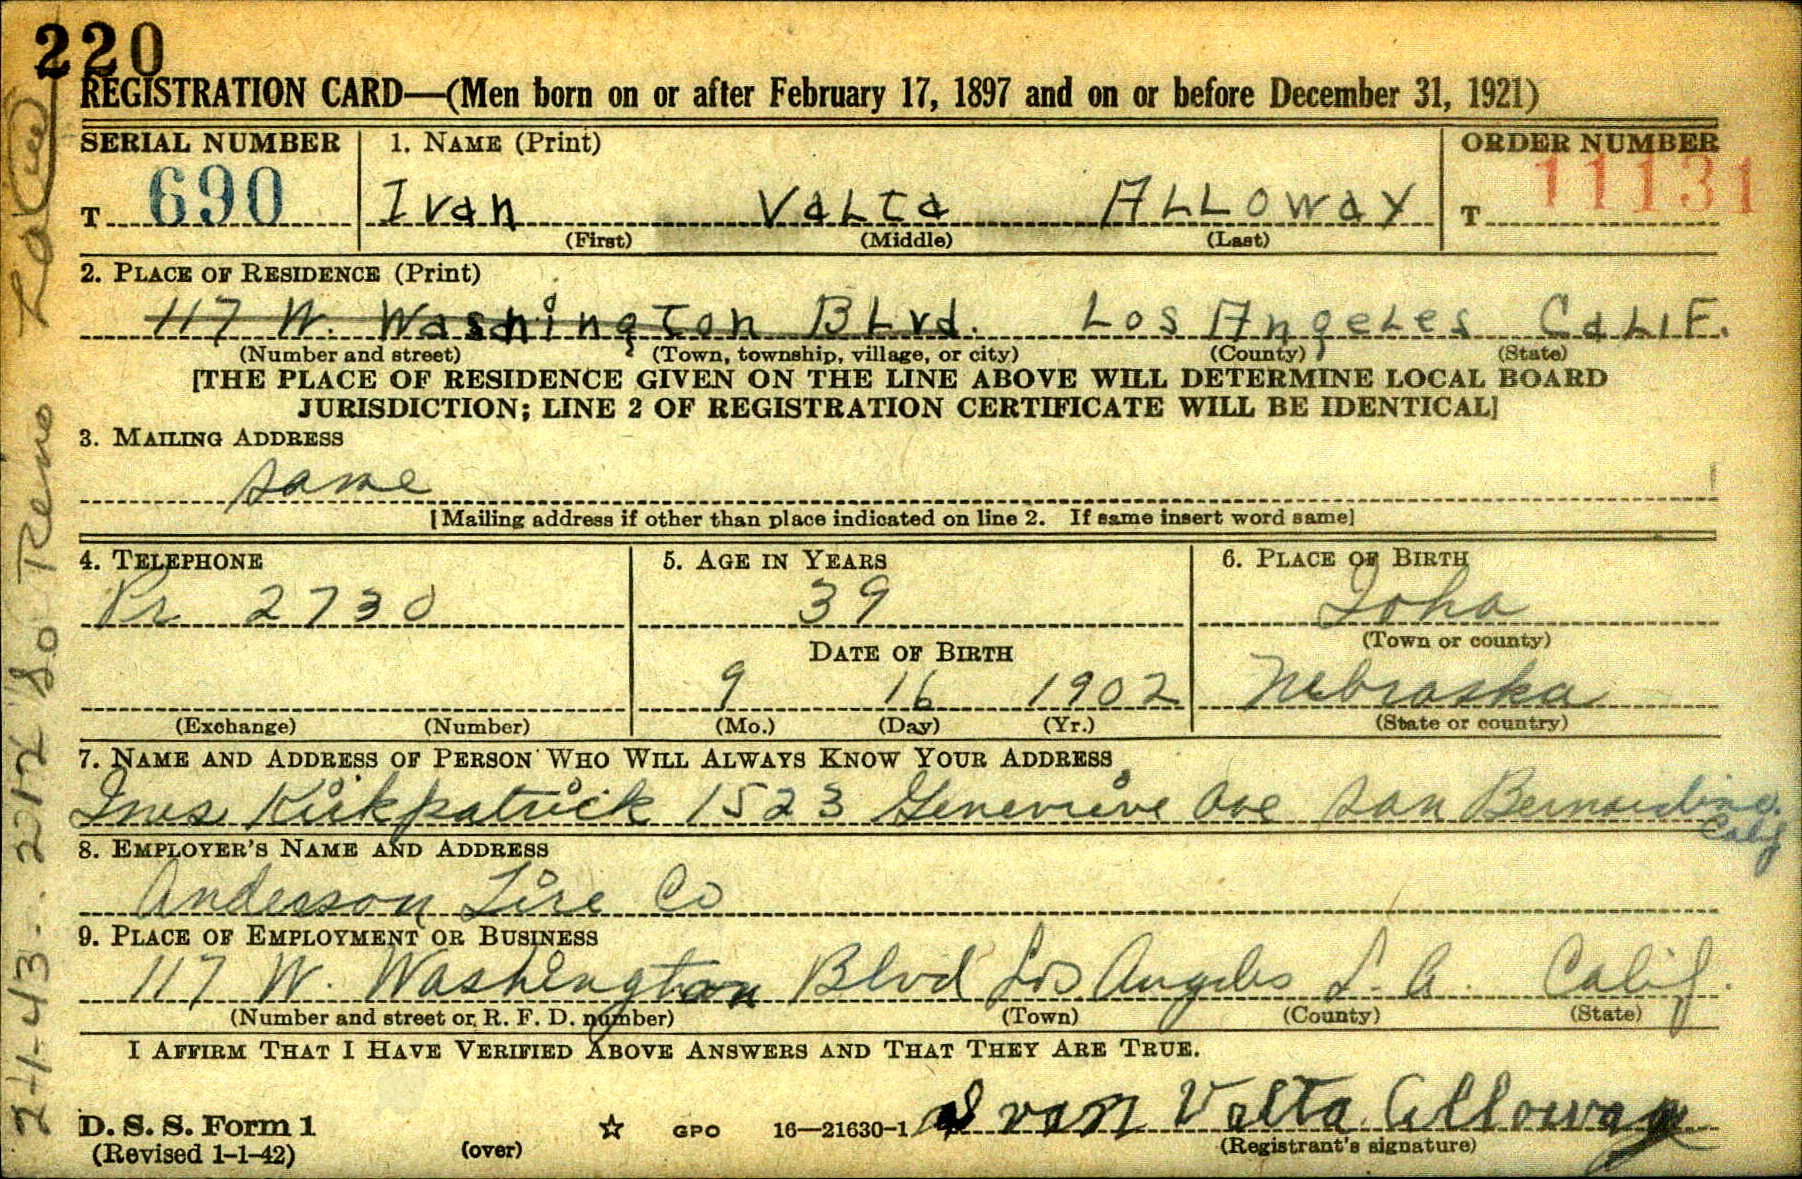 220
REGISTRATION CARD—(Men born on or after February 17, 1897 and on or before December 31, 1921)
SERIAL NUMBER 1. NAME (Print) ORDER NUMBER
T 690 Ivan Valta Alloway T 11131
(First) (Middle) (Last)
2. PLACE OF RESIDENCE (Print)
117 W. Washington Blvd. Los Angeles Calif.
(Number and street) (Town, township, village, or city) (County) (State)
[THE PLACE OF RESIDENCE GIVEN ON THE LINE ABOVE WILL DETERMINE LOCAL BOARD
JURISDICTION; LINE 2 OF REGISTRATION CERTIFICATE WILL BE IDENTICAL]
3. MAILING ADDRESS
same
[Mailing address if other than place indicated on line 2. If same insert word same]
4. TELEPHONE 5. AGE IN YEARS 6. PLACE OF BIRTH
Pr 2730 39
DATE OF BIRTH (Town or county)
9 16 1902 Nebraska
(Exchange) (Number) (Mo.) (Day) (Yr.) (State or country)
7. NAME AND ADDRESS OF PERSON WHO WILL ALWAYS KNOW YOUR ADDRESS
Kirkpatrick 1523 Genevieve Ave San Bernardino. Calif
8. EMPLOYER'S NAME AND ADDRESS
Anderson Tire Co
9. PLACE OF EMPLOYMENT OR BUSINESS
117 W. Washington Blvd Los Angeles L. A. Calif.
(Number and street or R. F. D. number) (Town) (County) (State)
I AFFIRM THAT I HAVE VERIFIED ABOVE ANSWERS AND THAT THEY ARE TRUE.
Ivan Valta Alloway
D. S. S. Form 1 ☆ GPO 16—21630-1 (Registrant's signature)
(Revised 1-1-42) (over)
2-1-43 - 2212 So Reno